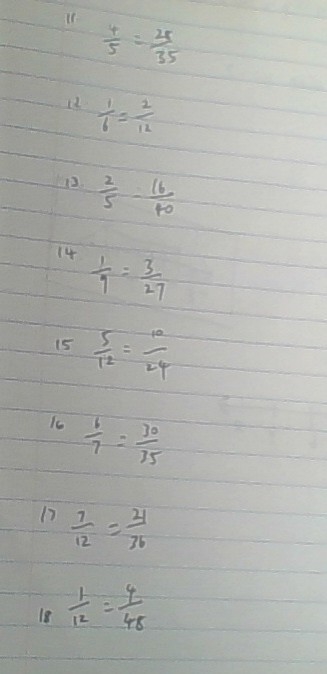 11 4/5 = 28/35
12 1/6 = 2/12
13 2/5 = 16/40
14 1/9 = 3/27
15 5/12 = 10/24
16 6/7 = 30/35
17 7/12 = 21/36
18 1/12 = 4/48